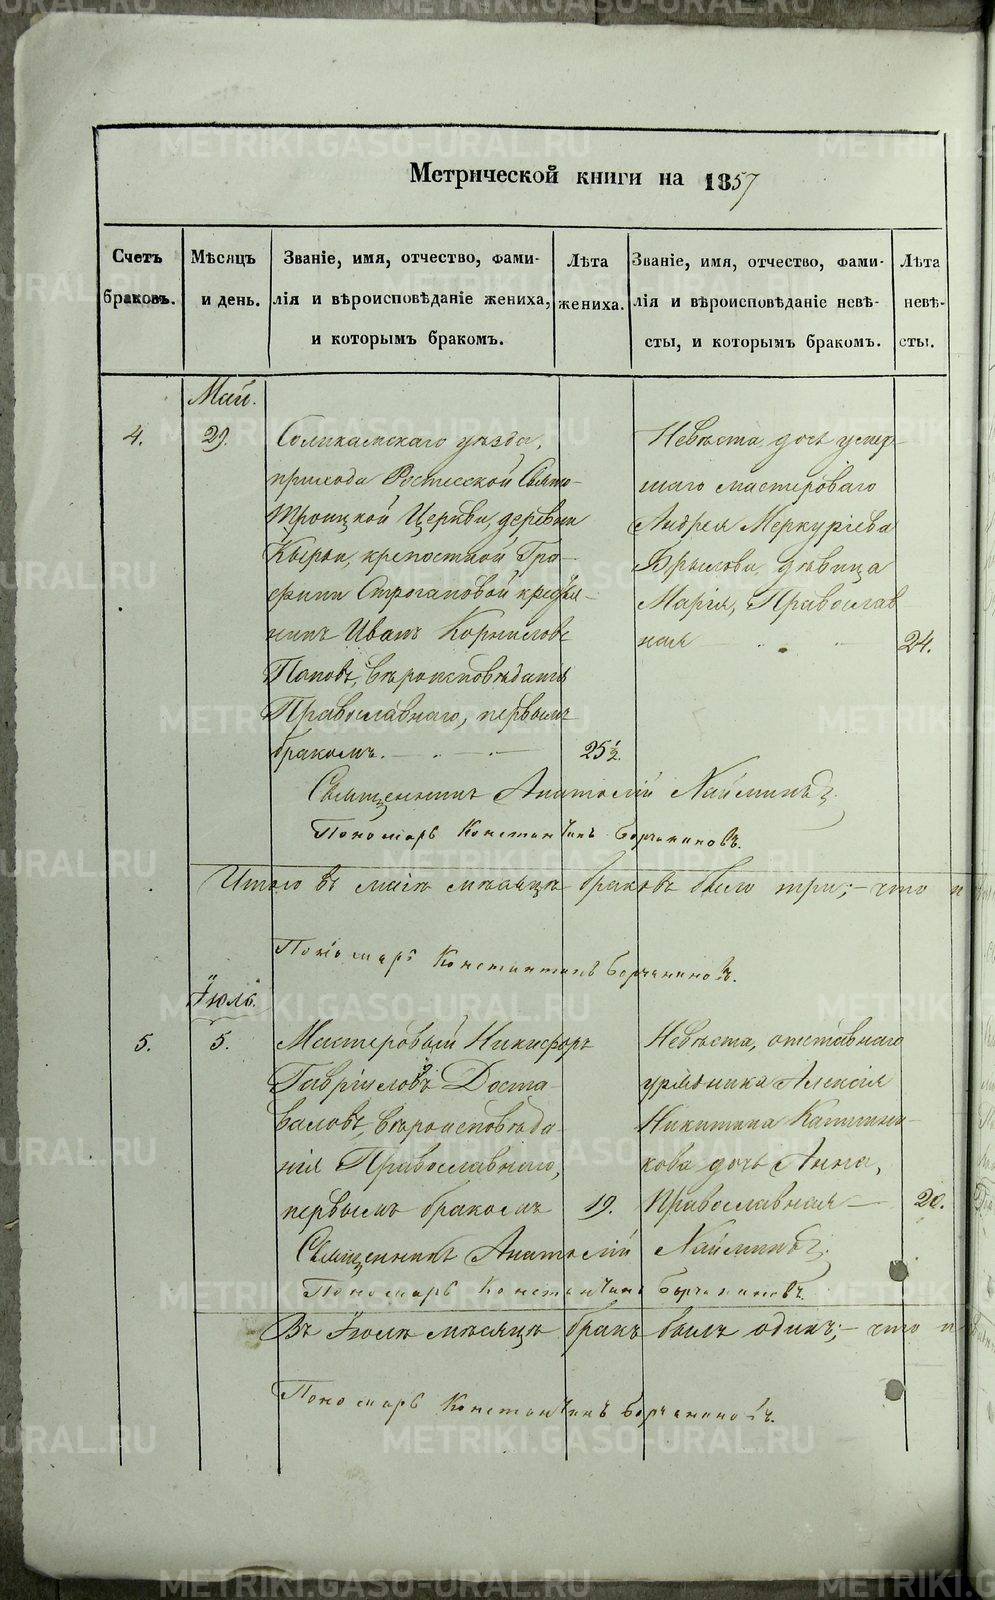 Метрической книги на 1857
Счетъ браковъ.
Мѣсяцъ и день.
Званіе, имя, отчество, фами-
лія и вѣроисповѣданіе жениха,
и которымъ бракомъ.
Лѣта жениха.
Званіе, имя, отчество, фами-
лія и вѣроисповѣданіе невѣ-
сты, и которымъ бракомъ.
Лѣта невѣ-
сты.
Май.
4.
29.
Соликамскаго уѣзда,
прихода Ростесской Свято-
Троицкой Церкви, деревни
Кырьи, крепостной Гра-
фини Строгановой крестья-
нинъ Иванъ Корниловъ
Поповъ, вѣроисповѣданія
Православнаго, первымъ
бракомъ.
25½.
Невѣста, дочь умер-
шаго мастероваго
Андрея Меркуріева
дѣвица
Марія, Православ
ная
24.
Священникъ Анатолій
Пономарь Константинъ Борчаниновъ.
Итого въ маіѣ мѣсяцѣ браковъ было три; - что и
Пономарь Константинъ Борчаниновъ.
Іюль.
5.
5.
Мастеровый Никифоръ
Гавріиловъ Доста-
валовъ, вѣроисповѣда-
нія Православнаго,
первымъ бракомъ
19.
Невѣста, отставнаго
урядника Алексія
Никитина
кова дочь Анна,
Православная
20.
Священникъ Анатолій
Пономарь Константинъ Борчаниновъ.
Въ Іюлѣ мѣсяцѣ бракъ былъ одинъ; - что и
Пономарь Константинъ Борчаниновъ.
METRIKI.GASO-URAL.RU